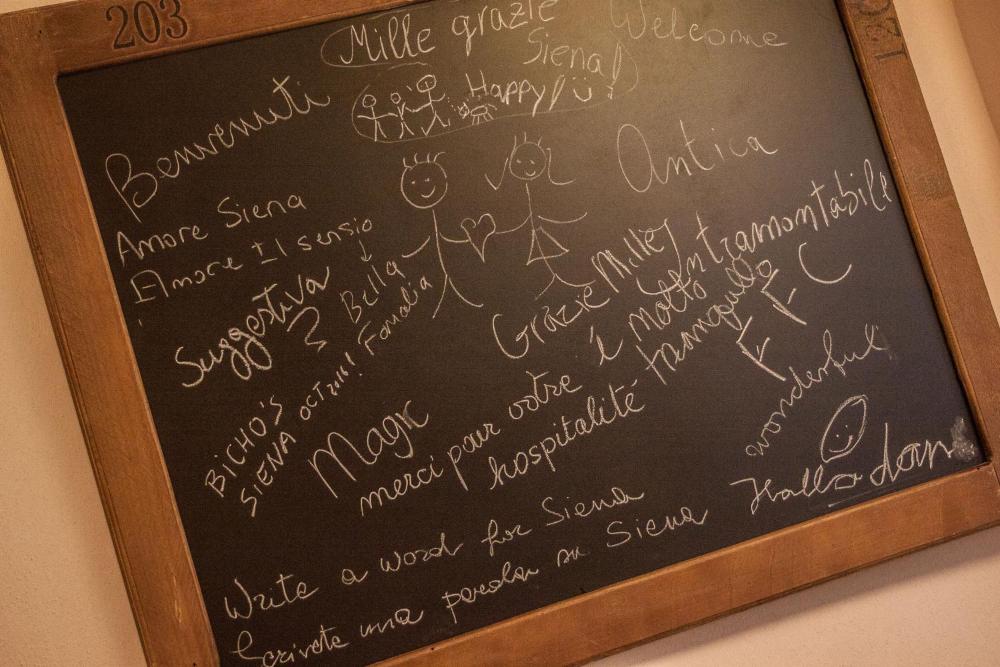 203
120
Mille grazie
Siena!
Welcome
Happy!
Benvenuti
Antica
Amore Siena
Amore Il sensio
Suggestiva
Bella
Famalia
Grazie Mille!
intramontabile
é molto
tranquillo
BICHO'S
SIENA OCT/11!
Magic
merci pour votre
hospitalité
wonderful
Write a word for Siena
Scrivete una parola su Siena